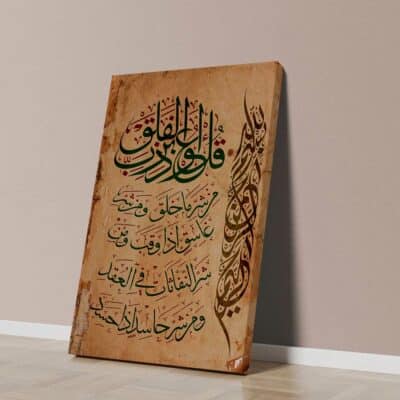 بسم الله الرحمن الرحيم
قل اعوذ برب الفلق
من شر ما خلق ومن شر
غاسق اذا وقب ومن
شر النفاثات في العقد
ومن شر حاسد اذا حسد